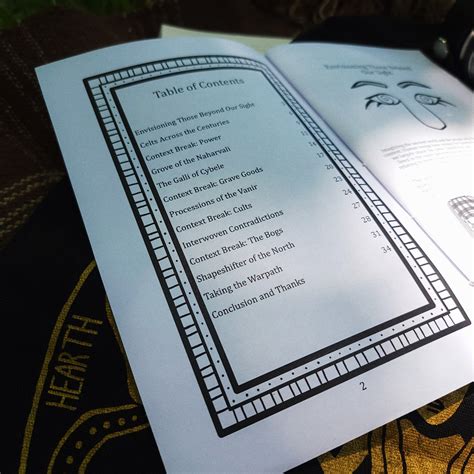 Table of Contents
Envisioning Those Beyond Our Sight
Celts Across the Centuries
Context Break: Power
Grove of the Naharvali
The Galli of Cybele
Context Break: Grave Goods
Processions of the Vanir
Context Break: Cults
Interwoven Contradictions
Context Break: The Bogs
Shapeshifter of the North
Taking the Warpath
Conclusion and Thanks
11
14
16
20
24
27
28
31
34
2
Envisioning Those Beyond
Our Sight
HEARTH